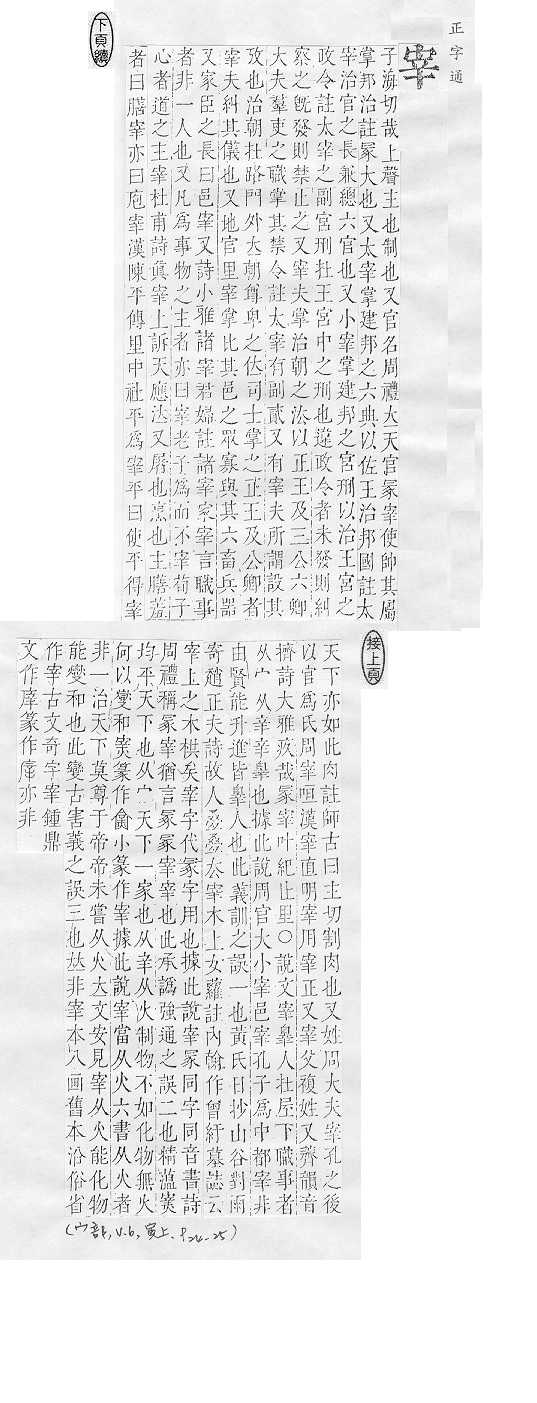 正字通
宰
子海切哉上聲主也制也又官名周禮大天官冢宰使帥其屬
掌邦治註冢大也又太宰掌建邦之六典以佐王治邦國註太
宰治官之長兼總六官也又小宰掌建邦之宮刑以治王宮之
政令註太宰之副宮刑在王宮中之刑也違政令者未發則糾
察之旣發則禁止之又宰夫掌治朝之法以正王及三公六卿
大夫羣吏之職掌其禁令註太宰有副貳又有宰夫所謂設其
攷也治朝在路門外大朝尊卑之位司士掌之正王及公卿者
宰夫糾其儀也又地官里宰掌比其邑之眾寡與其六畜兵器
又家臣之長曰邑宰又詩小雅諸宰君婦註諸宰家宰言職事
者非一人也又凡爲事物之主者亦曰宰老子爲而不宰荀子
心者道之主宰杜甫詩眞宰上訴天應泣又屠也烹也主膳羞
者曰膳宰亦曰庖宰漢陳平傳里中社平爲宰平曰使平得宰
下頁續
接上頁
天下亦如此肉註師古曰主切割肉也又姓周大夫宰孔之後
以官爲氏周宰咺漢宰直明宰用宰正又宰父複姓又齊韻音
擠詩大雅疚哉冢宰叶紀止里○說文宰辠人在屋下職事者
从宀从辛辛辠也據此說周官大小宰邑宰孔子爲中都宰非
由賢能升進皆辠人也此義訓之誤一也黃氏日抄山谷對雨
寄趙正夫詩故人叠叠太宰木上女蘿註內翰作曾紆墓誌云
宰上之木栱矣宰字代冢字用也據此說宰冢同字同音書詩
周禮稱冢宰猶言冢冢宰宰也此承譌強通之誤二也精薀
均平天下也从宀天下一家也从辛从火制物不如化物無火
何以變和篆作小篆作宰據此說宰當从火六書从火者
非一治天下莫尊于帝帝未嘗从火大文安見宰从火能化物
能變和也此變古害義之誤三也故非宰本八画舊本沿俗省
作宰古文奇字宰鍾鼎
文作篆作亦非
(宀部, v.6, 寅上, P24-25)